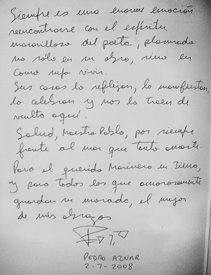 Siempre es una enorme emoción
reencontrarse con el espíritu
maravilloso del poeta, plasmado
no sólo en su obra, sino en
como supo vivir.
Sus casas lo reflejan, lo manifiestan,
lo celebran y nos lo traen de
vuelta aquí.
Salud, Maestro Pablo, por siempre
frente al mar que tanto amaste.
Para el querido Marinero en Tierra,
y para todos los que amorosamente
guardan su morada, el mejor
de mis abrazos
PEDRO AZNAR
2-7-2008